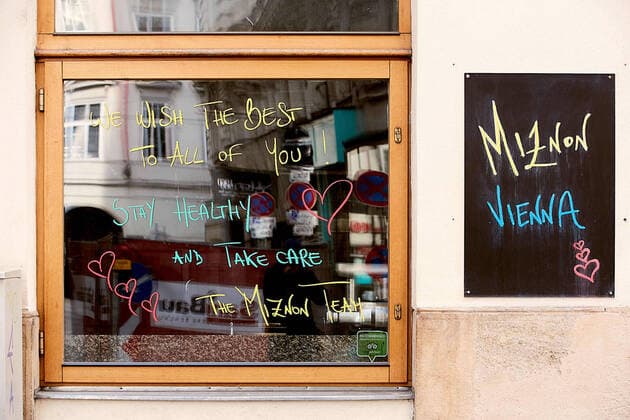 We Wish The Best
To All of You!
Stay Healthy
and Take care
The Miznon Team
Bau
Miznon
Vienna